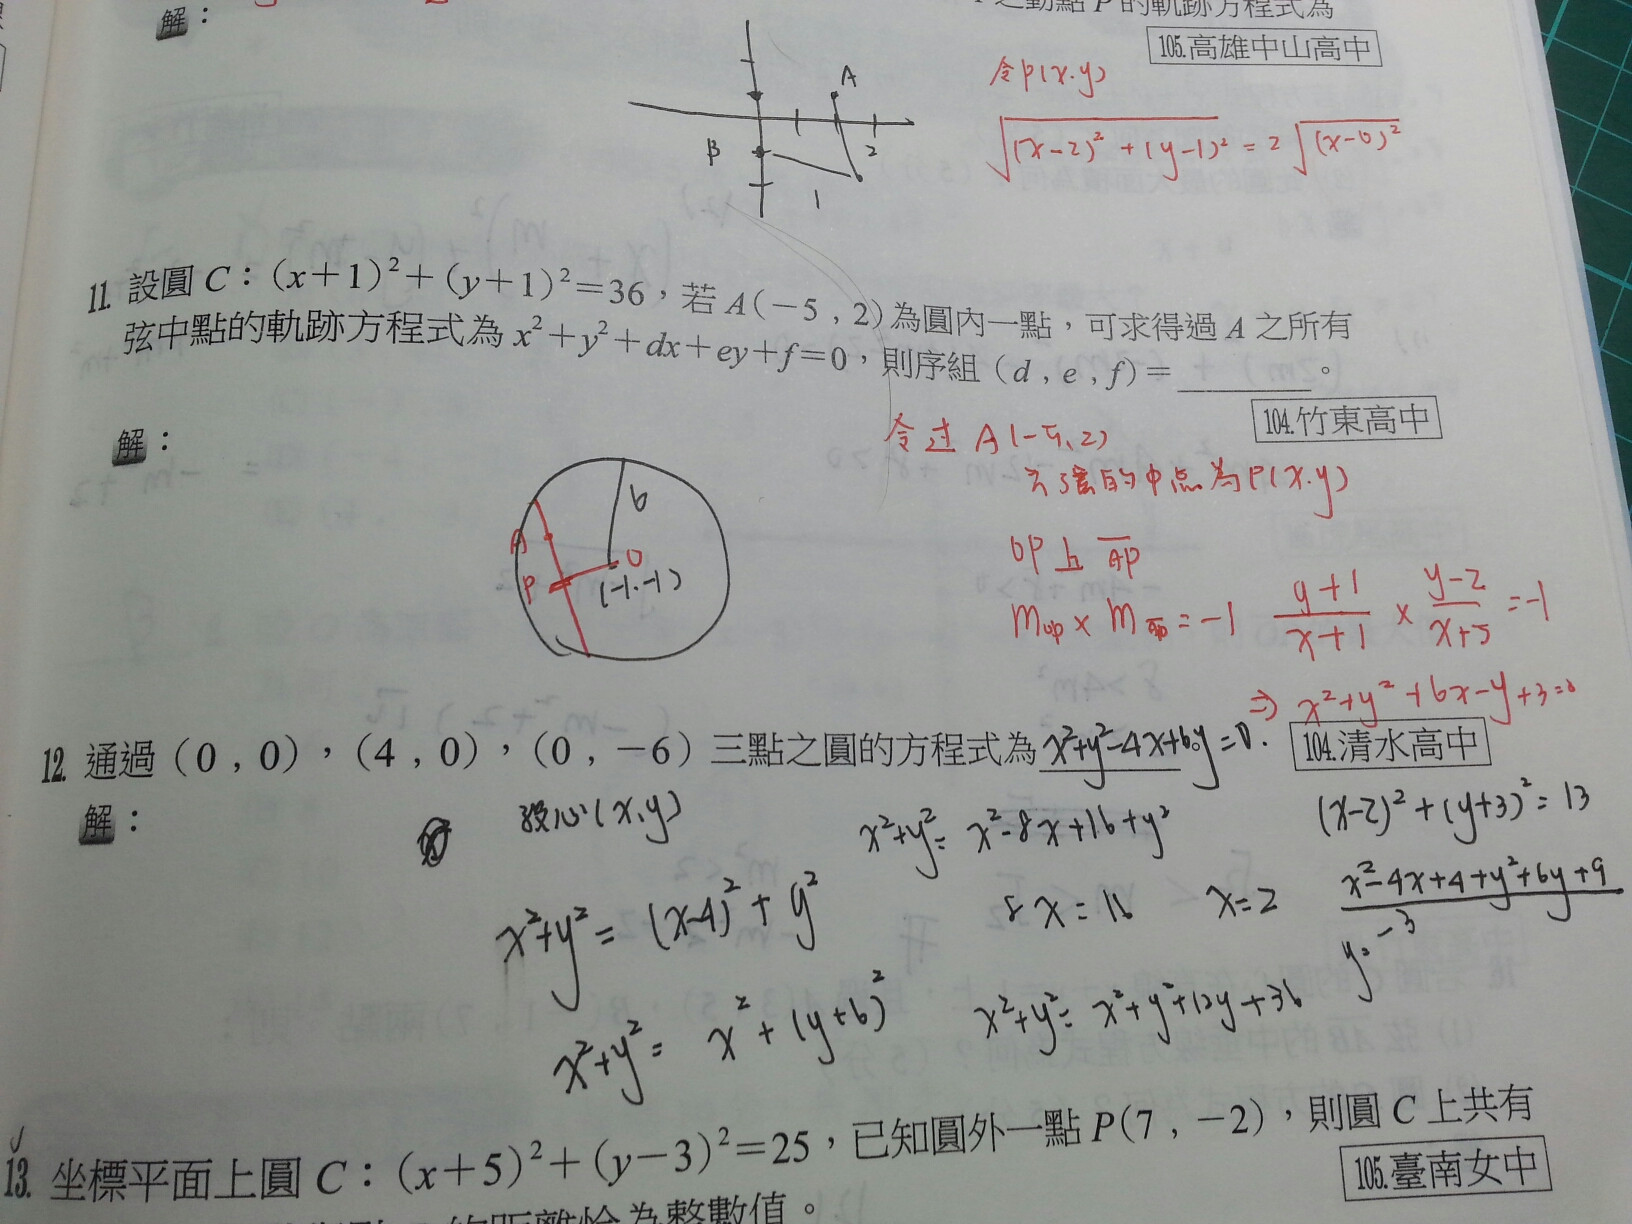 之動點 P 的軌跡方程式為
解：
105.高雄中山高中
令P(x.y)
A
B
2
1
√(x-2)²+(y-1)² = 2√(x-0)²
11. 設圓 C：(x+1)²+(y+1)²=36，若 A(-5, 2)為圓內一點，可求得過 A 之所有
弦中點的軌跡方程式為 x²+y²+dx+ey+f=0，則序組 (d, e, f)=______。
104.竹東高中
解：
令过 A(-5,2)
的中点為P(x.y)
6
A
O
P
(-1.-1)
OP⊥AP
m_OP × m_AP = -1 (y+1)/(x+1) × (y-2)/(x+5) = -1
⇒ x²+y²+6x-y+3=0
12. 通過 (0, 0)，(4, 0)，(0, -6) 三點之圓的方程式為 x²+y²-4x+6y=0.
104.清水高中
解：
設心(x,y)
x²+y²= x²-8x+16+y²
(x-2)²+(y+3)²=13
x²+y²= (x-4)²+y²
8x=16 x=2
x²-4x+4+y²+6y+9
y=-3
x²+y²= x²+(y+6)²
x²+y²= x²+y²+12y+36
✓
13. 坐標平面上圓 C：(x+5)²+(y-3)²=25，已知圓外一點 P(7, -2)，則圓 C 上共有
105.臺南女中
的距離恰為整數值。